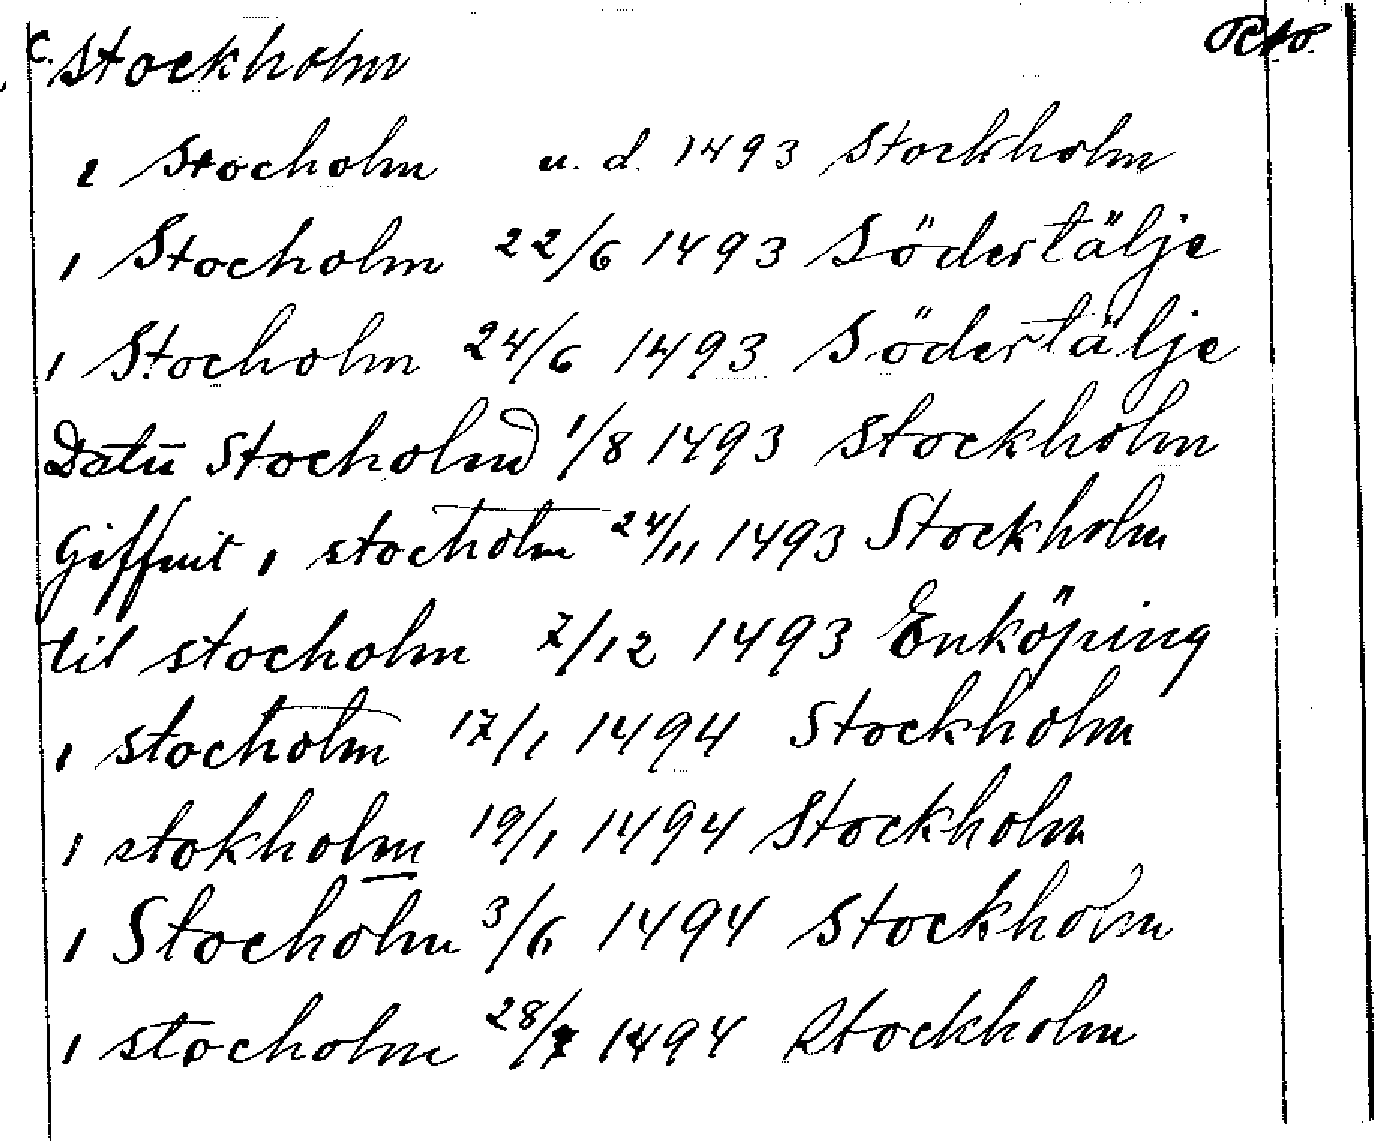 C. Stockholm Ocko
ı Stocholm u. d. 1493 Stockholm
ı Stocholm 22/6 1493 Södertälje
ı Stocholm 24/6 1493 Södertälje
Datū Stocholm 1/8 1493 Stockholm
Giffuit ı stocholm 24/11 1493 Stockholm
til stocholm 7/12 1493 Enköping
ı stocholm 17/1 1494 Stockholm
ı stokholm 19/1 1494 Stockholm
ı Stocholm 3/6 1494 Stockholm
ı stocholm 28/7 1494 Stockholm